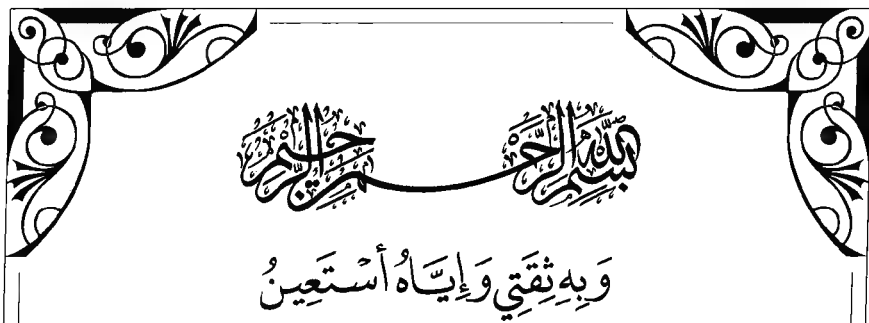 بسم الله الرحمن الرحيم
وَبِهِ ثِقَتِي وَإِيَّاهُ أَسْتَعِينُ